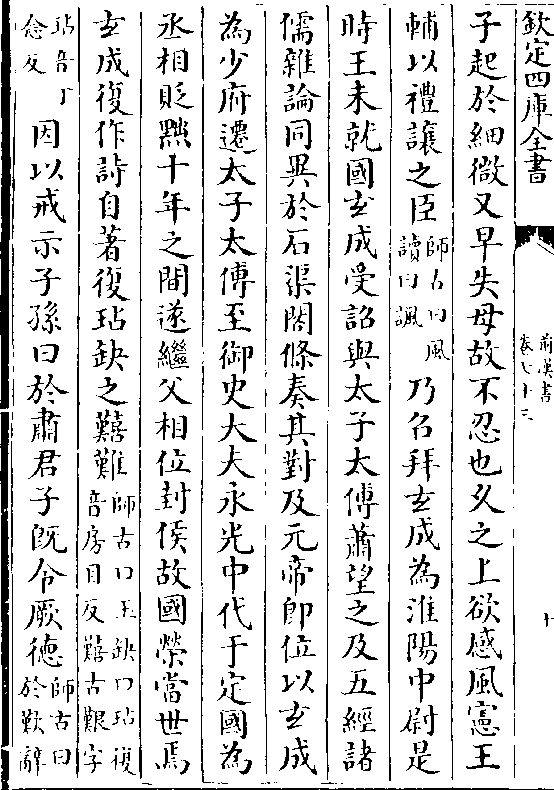 欽定四庫全書
前漢書
卷七十三
十
子起於細微又早失母故不忍也乆之上欲感風憲王
輔以禮讓之臣師古曰風讀曰諷乃召拜玄成為淮陽中尉是
時王未就國玄成受詔與太子太傅蕭望之及五經諸
儒雜論同異於石渠閣條奏其對及元帝即位以玄成
為少府遷太子太傅至御史大夫永光中代于定國為
丞相貶黜十年之間遂繼父相位封侯故國榮當世焉
玄成復作詩自著復玷缺之囏難師古曰玉缺曰玷復音房目反囏古艱字
玷音丁念反因以戒示子孫曰於肅君子既令厥德師古曰於歎辭